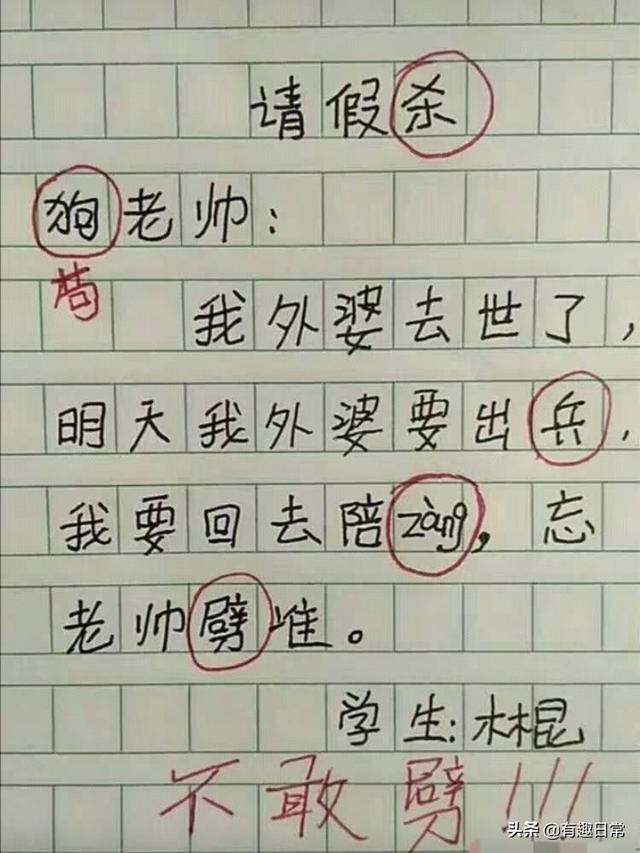 请假杀
狗老帅：
苟
我外婆去世了，
明天我外婆要出兵，
我要回去陪zàng，忘
老帅劈准。
学生：木棍
不敢劈!!!
头条 @有趣日常